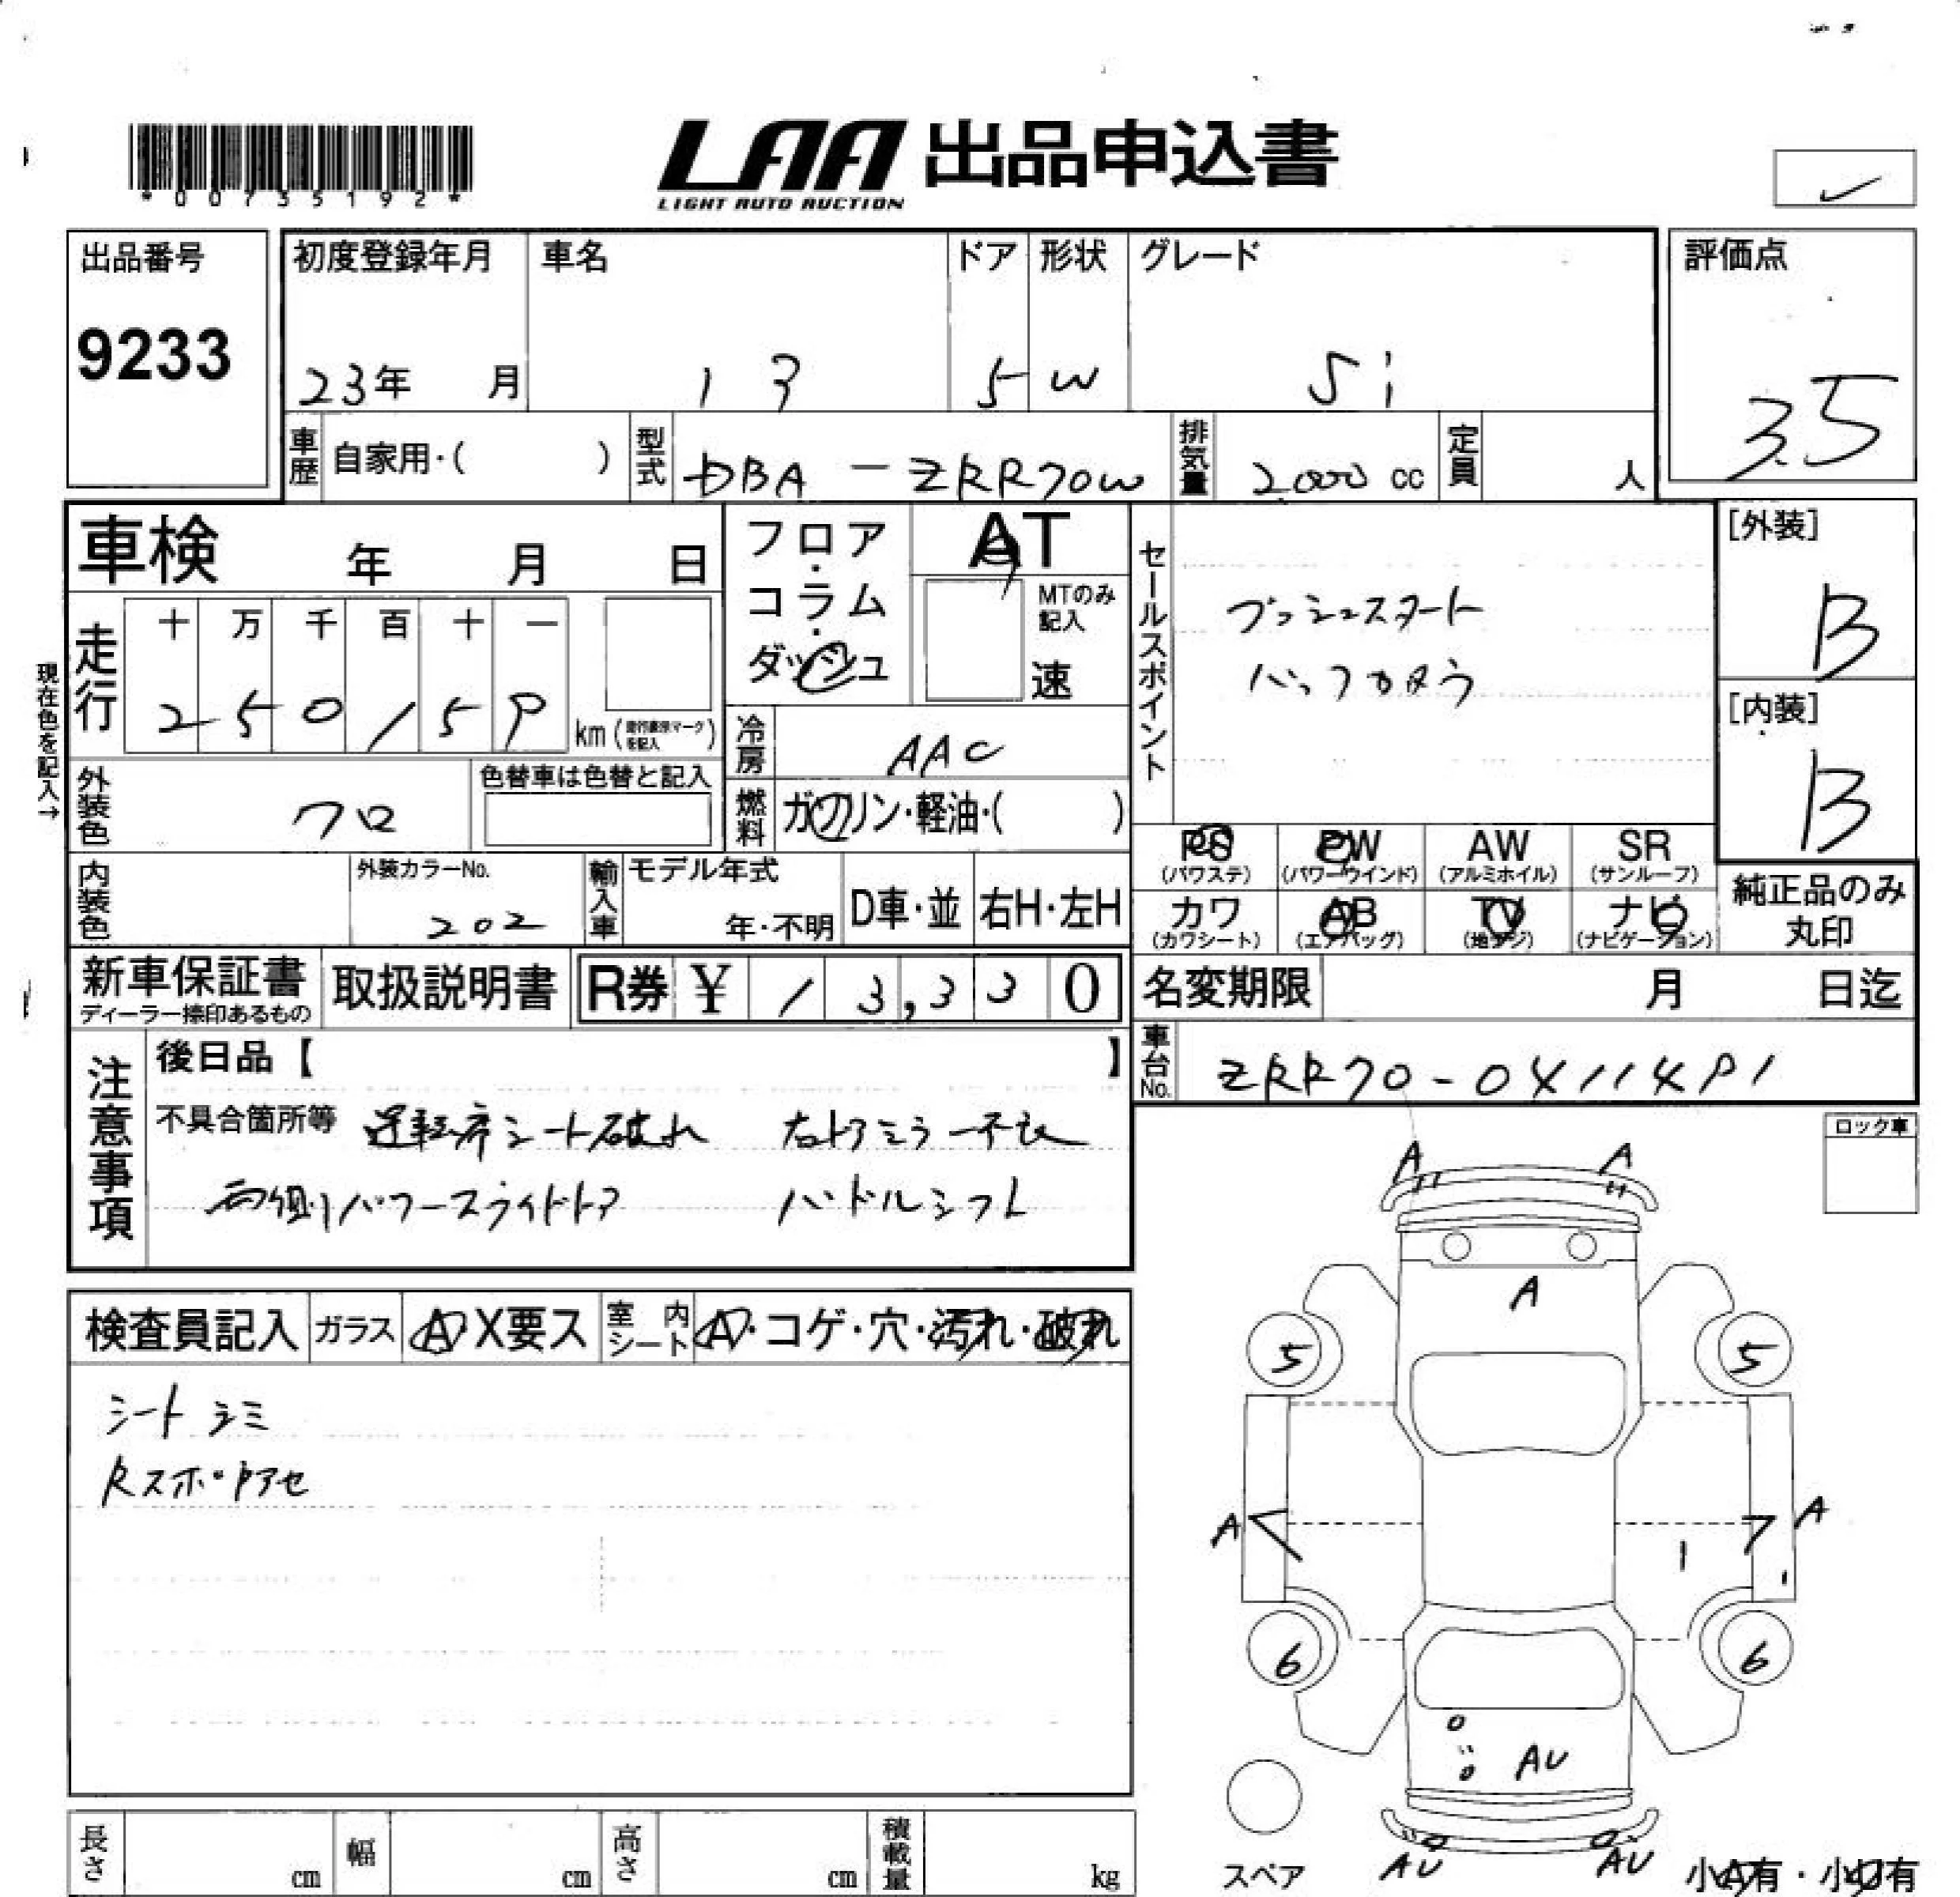 *00735192*
LAA 出品申込書
LIGHT AUTO AUCTION
出品番号
9233
初度登録年月 車名 ドア 形状 グレード
23年 月 5 W Si
評価点
3.5
車歴 自家用・( ) 型式 DBA-ZRR70W 排気量 2,000 cc 定員 人
車検 年 月 日
フロア・コラム・ダッシュ
AT
MTのみ記入
速
セールスポイント
プッシュスタート
バックカメラ
[外装]
B
[内装]
B
現在色を記入→
走行 十 万 千 百 十 一
2 5 0 1 5 9 km (走行要楽マークを記入)
冷房 AAC
外装色 クロ 色替車は色替と記入
燃料 ガソリン・軽油・( )
PS (パワステ) PW (パワーウインド) AW (アルミホイル) SR (サンルーフ)
カワ (カワシート) AB (エアバッグ) TV (地デジ) ナビ (ナビゲーション)
純正品のみ丸印
内装色 外装カラーNo. 202 輸入車 モデル年式 年・不明 D車・並 右H・左H
新車保証書 ディーラー捺印あるもの 取扱説明書 R券 ¥ 13,330
名変期限 月 日迄
車台No. ZRR70-0411491
注意事項
後日品【 】
不具合箇所等 運転席シート破れ 右ドアミラー不良
両側パワースライドドア ハンドルシフト
ロック車
検査員記入 ガラス A・X要ス 室内シート A・コゲ・穴・汚れ・破れ
シートシミ
A A
A
5 5
A A
6 6
AU
AU AU
スペア
小A有・小U有
長さ cm 幅 cm 高さ cm 積載量 kg